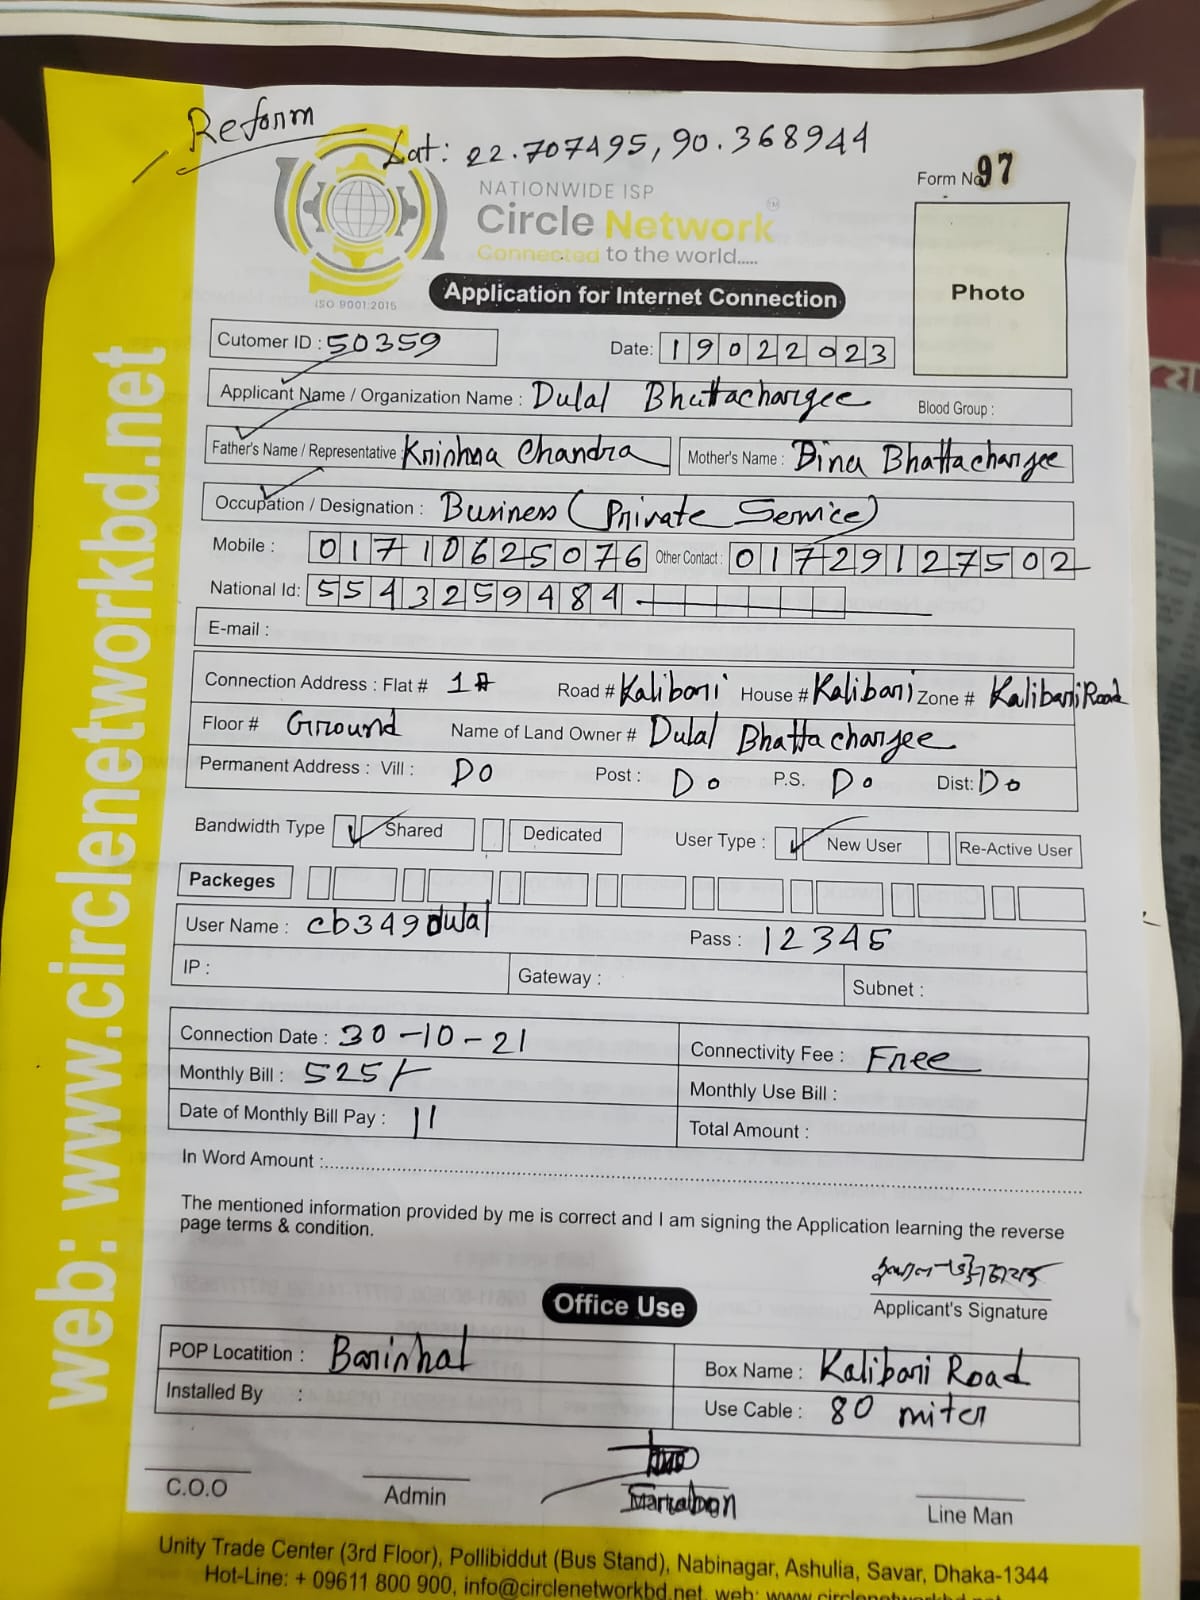 Reform
Lat: 22.707495, 90.368944
Form No. 97
NATIONWIDE ISP
Circle Network TM
Connected to the world.....
ISO 9001:2015
Application for Internet Connection
Photo
Cutomer ID : 50359
Date: 19022023
Applicant Name / Organization Name : Dulal Bhattachargee Blood Group :
Father's Name / Representative : Krishna Chandra Mother's Name : Dina Bhattachargee
Occupation / Designation : Business (Private Service)
Mobile : 01710625076 Other Contact : 01729127502
National Id: 5543259484
E-mail :
Connection Address : Flat # 1 Road # Kalibari House # Kalibari Zone # Kalibari Road
Floor # Ground Name of Land Owner # Dulal Bhattachargee
Permanent Address : Vill : Do Post : Do P.S. Do Dist: Do
Bandwidth Type Shared Dedicated User Type : New User Re-Active User
Packeges
User Name : cb349dulal Pass : 12345
IP : Gateway : Subnet :
Connection Date : 30-10-21 Connectivity Fee : Free
Monthly Bill : 525/- Monthly Use Bill :
Date of Monthly Bill Pay : 11 Total Amount :
In Word Amount :
The mentioned information provided by me is correct and I am signing the Application learning the reverse
page terms & condition.
Applicant's Signature
Office Use
POP Locatition : Barishal Box Name : Kalibari Road
Installed By : Use Cable : 80 miter
C.O.O Admin Line Man
Unity Trade Center (3rd Floor), Pollibiddut (Bus Stand), Nabinagar, Ashulia, Savar, Dhaka-1344
Hot-Line: + 09611 800 900, info@circlenetworkbd.net, web: www.circlenetworkbd.net
web: www.circlenetworkbd.net